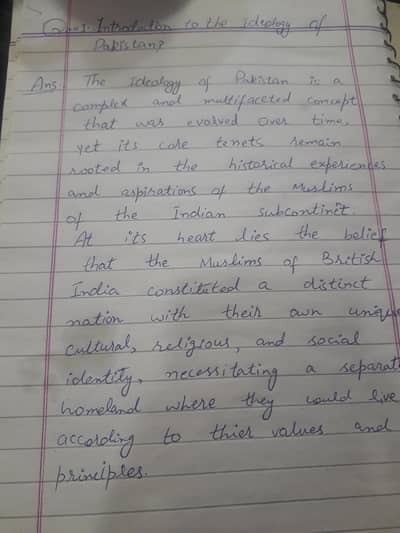 Qno1. Introduction to the ideology of
Pakistan?
Ans. The Ideology of Pakistan is a
complex and multifaceted concept
that was evolved over time,
yet its core tenets remain
rooted in the historical experiences
and aspirations of the Muslims
of the Indian subcontinet.
At its heart lies the belief
that the Muslims of British
India constituted a distinct
nation with their own unique
cultural, religious, and social
identity, necessitating a separat
homeland where they could live
according to thier values and
principles.